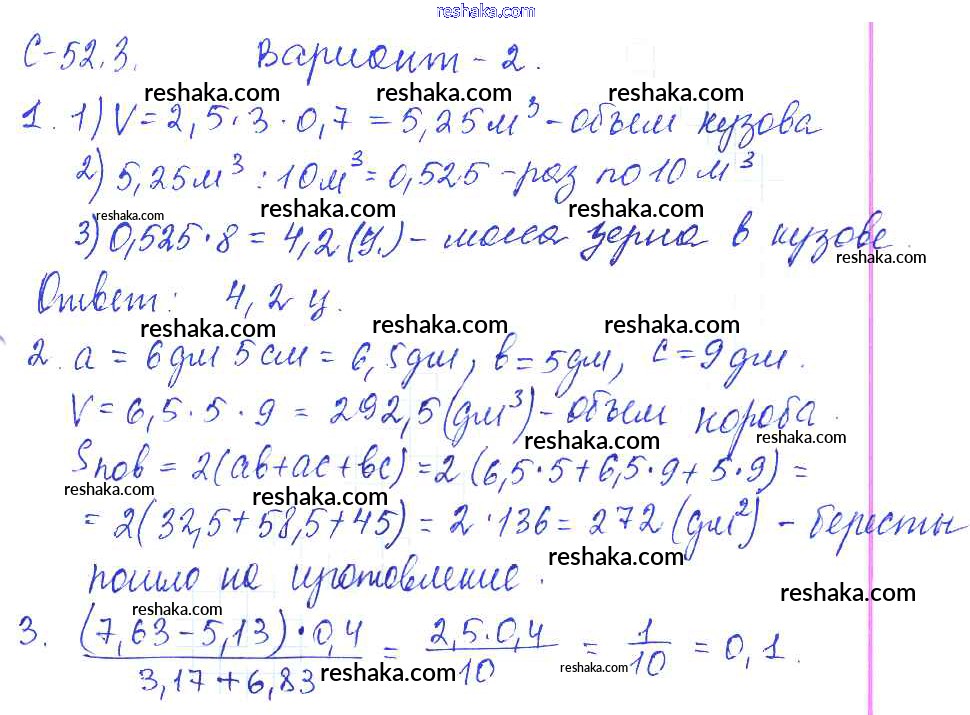 reshaka.com
С-52.3. Вариант - 2.
reshaka.com reshaka.com reshaka.com
1. 1) V = 2,5 · 3 · 0,7 = 5,25 м³ - объем кузова
2) 5,25 м³ : 10 м³ = 0,525 - раз по 10 м³
reshaka.com reshaka.com reshaka.com
3) 0,525 · 8 = 4,2 (ц.) - масса зерна в кузове.
reshaka.com
Ответ: 4,2 ц.
reshaka.com reshaka.com reshaka.com
2. a = 6 дм 5 см = 6,5 дм, b = 5 дм, c = 9 дм.
V = 6,5 · 5 · 9 = 292,5 (дм³) - объем короба.
reshaka.com reshaka.com
Sпов = 2(ab + ac + bc) = 2 (6,5 · 5 + 6,5 · 9 + 5 · 9) =
reshaka.com reshaka.com
= 2(32,5 + 58,5 + 45) = 2 · 136 = 272 (дм²) - бересты
reshaka.com
пошло на изготовление.
reshaka.com reshaka.com
3. (7,63 - 5,13) · 0,4 / 3,17 + 6,83 = 2,5 · 0,4 / 10 = 1 / 10 = 0,1.
reshaka.com reshaka.com reshaka.com